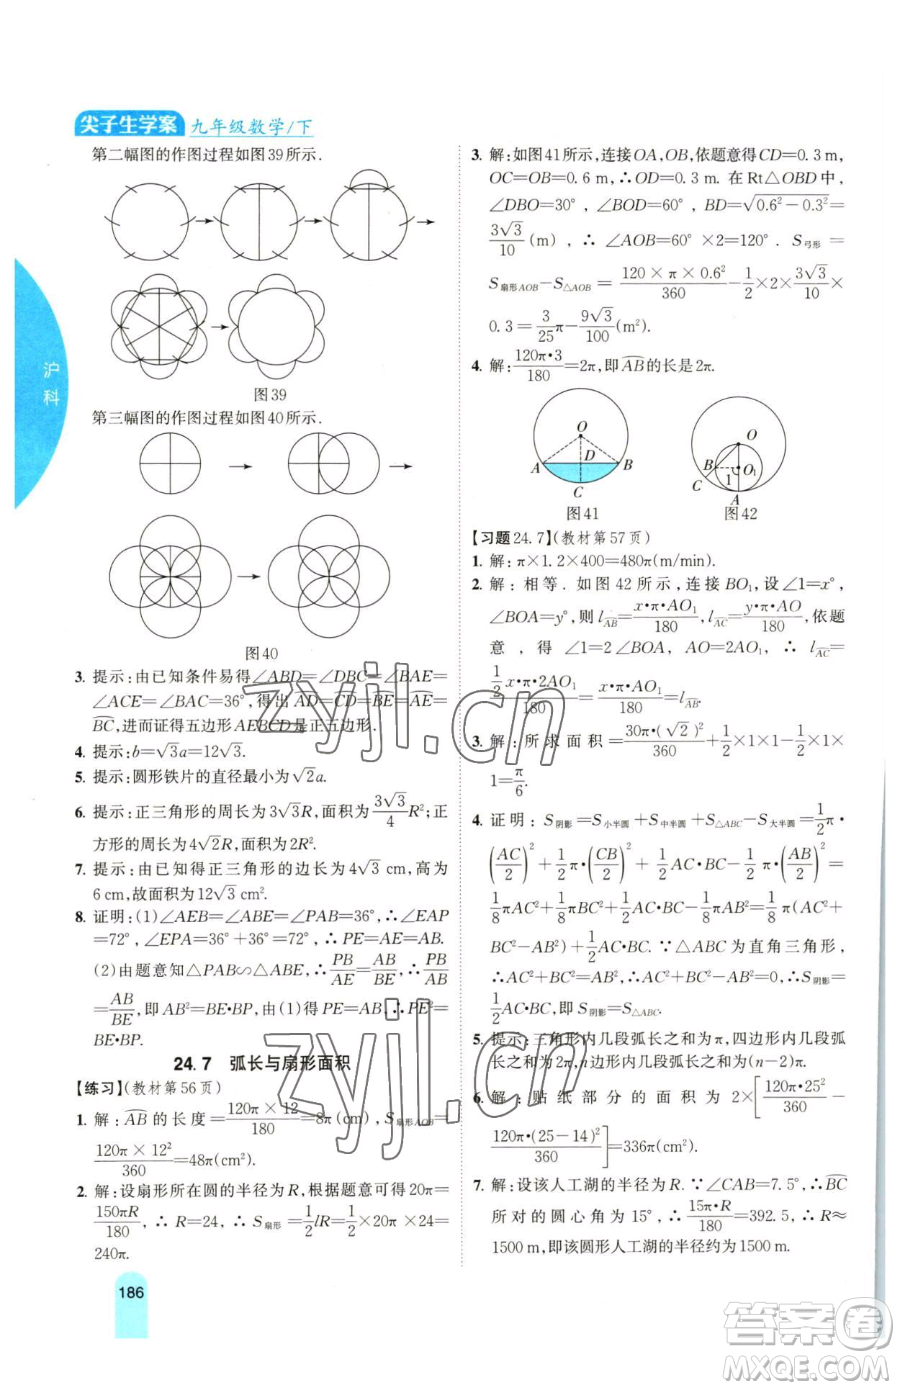 尖子生学案 九年级数学/下
沪科
第二幅图的作图过程如图39所示.
图39
第三幅图的作图过程如图40所示.
图40
3. 提示:由已知条件易得∠ABD=∠DBC=∠BAE=
∠ACE=∠BAC=36°,得出AD=CD=BE=AE=
BC,进而证得五边形AEBCD是正五边形.
4. 提示:b=√3a=12√3.
5. 提示:圆形铁片的直径最小为√2a.
6. 提示:正三角形的周长为3√3R,面积为3√3/4 R²;正
方形的周长为4√2R,面积为2R².
7. 提示:由已知得正三角形的边长为4√3 cm,高为
6 cm,故面积为12√3 cm².
8. 证明:(1)∠AEB=∠ABE=∠PAB=36°,∴∠EAP
=72°,∠EPA=36°+36°=72°,∴PE=AE=AB.
(2)由题意知△PAB∽△ABE,∴PB/AE=PB/BE
=AB/BE,即AB²=BE•PB,由(1)得PE=AB,∴PE²=
BE•PB.
24.7 弧长与扇形面积
【练习】(教材第56页)
1. 解:AB的长度=120π×12/180=8π(cm),S扇形AOB=
120π×12²/360=48π(cm²).
2. 解:设扇形所在圆的半径为R,根据题意可得20π=
150πR/180,∴R=24,∴S扇形=1/2 lR=1/2×20π×24=
240π.
186
3. 解:如图41所示,连接OA,OB,依题意得CD=0.3 m,
OC=OB=0.6 m,∴OD=0.3 m. 在Rt△OBD中,
∠DBO=30°,∠BOD=60°,BD=√(0.6²-0.3²)=
3√3/10(m),∴∠AOB=60°×2=120°.S弓形=
S扇形AOB-S△AOB=120×π×0.6²/360-1/2×2×3√3/10×
0.3=3/25π-9√3/100(m²).
4. 解:120π•3/180=2π,即AB的长是2π.
O
A
D
B
C
图41
O
B
O₁
C
1
A
图42
【习题24.7】(教材第57页)
1. 解:π×1.2×400=480π(m/min).
2. 解:相等.如图42所示,连接BO₁,设∠1=x°,
∠BOA=y°,则l AB=x•π•AO₁/180,l AC=y•π•AO/180,依题
意,得∠1=2∠BOA,AO=2AO₁,∴l AC=
1/2 x•π•2AO₁/180=x•π•AO₁/180=l AB.
3. 解:所求面积=30π•(√2)²/360+1/2×1×1-1/2×1×
1=π/6.
4. 证明:S阴影=S小半圆+S中半圆+S△ABC-S大半圆=1/2π•
(AC/2)²+1/2π•(CB/2)²+1/2AC•BC-1/2π•(AB/2)²=
1/8πAC²+1/8πBC²+1/2AC•BC-1/8πAB²=1/8π(AC²+
BC²-AB²)+1/2AC•BC.∵△ABC为直角三角形,
∴AC²+BC²=AB²,∴AC²+BC²-AB²=0,∴S阴影=
1/2AC•BC,即S阴影=S△ABC.
5. 提示:三角形内几段弧长之和为π,四边形内几段弧
长之和为2π,n边形内几段弧长之和为(n-2)π.
6. 解:贴纸部分的面积为2×[120π•25²/360-
120π•(25-14)²/360]=336π(cm²).
7. 解:设该人工湖的半径为R.∵∠CAB=7.5°,∴BC
所对的圆心角为15°,∴15π•R/180=392.5,∴R≈
1500 m,即该圆形人工湖的半径约为1500 m.
zyjl.cn
zyjl.cn
答案圈
MXQE.COM